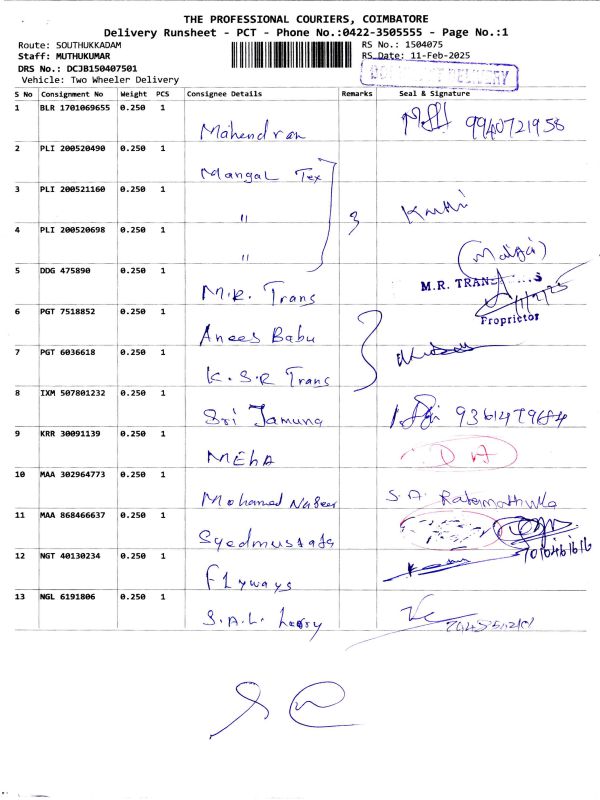 THE PROFESSIONAL COURIERS, COIMBATORE
Delivery Runsheet - PCT - Phone No.:0422-3505555 - Page No.:1
Route: SOUTHUKKADAM RS No.: 1504075
Staff: MUTHUKUMAR RS Date: 11-Feb-2025
DRS No.: DCJB150407501
DELIVERY
Vehicle: Two Wheeler Delivery
S No Consignment No Weight PCS Consignee Details Remarks Seal & Signature
1 BLR 1701069655 0.250 1 Mahendran 9940721958
2 PLI 200520490 0.250 1 Mangal Tex
3 PLI 200521160 0.250 1 " 3
4 PLI 200520698 0.250 1 "
5 DDG 475890 0.250 1 M.R. Trans M.R. TRANS
Proprietor
6 PGT 7518852 0.250 1 Anees Babu
7 PGT 6036618 0.250 1 K.S.R Trans
8 IXM 507801232 0.250 1 Sri Jamuna 9361479684
9 KRR 30091139 0.250 1 MEhA
10 MAA 302964773 0.250 1 Mohamed Nafeer S.A.
11 MAA 868466637 0.250 1 Syedmustafa
12 NGT 40130234 0.250 1 Flyways
13 NGL 6191806 0.250 1 S.A.L.